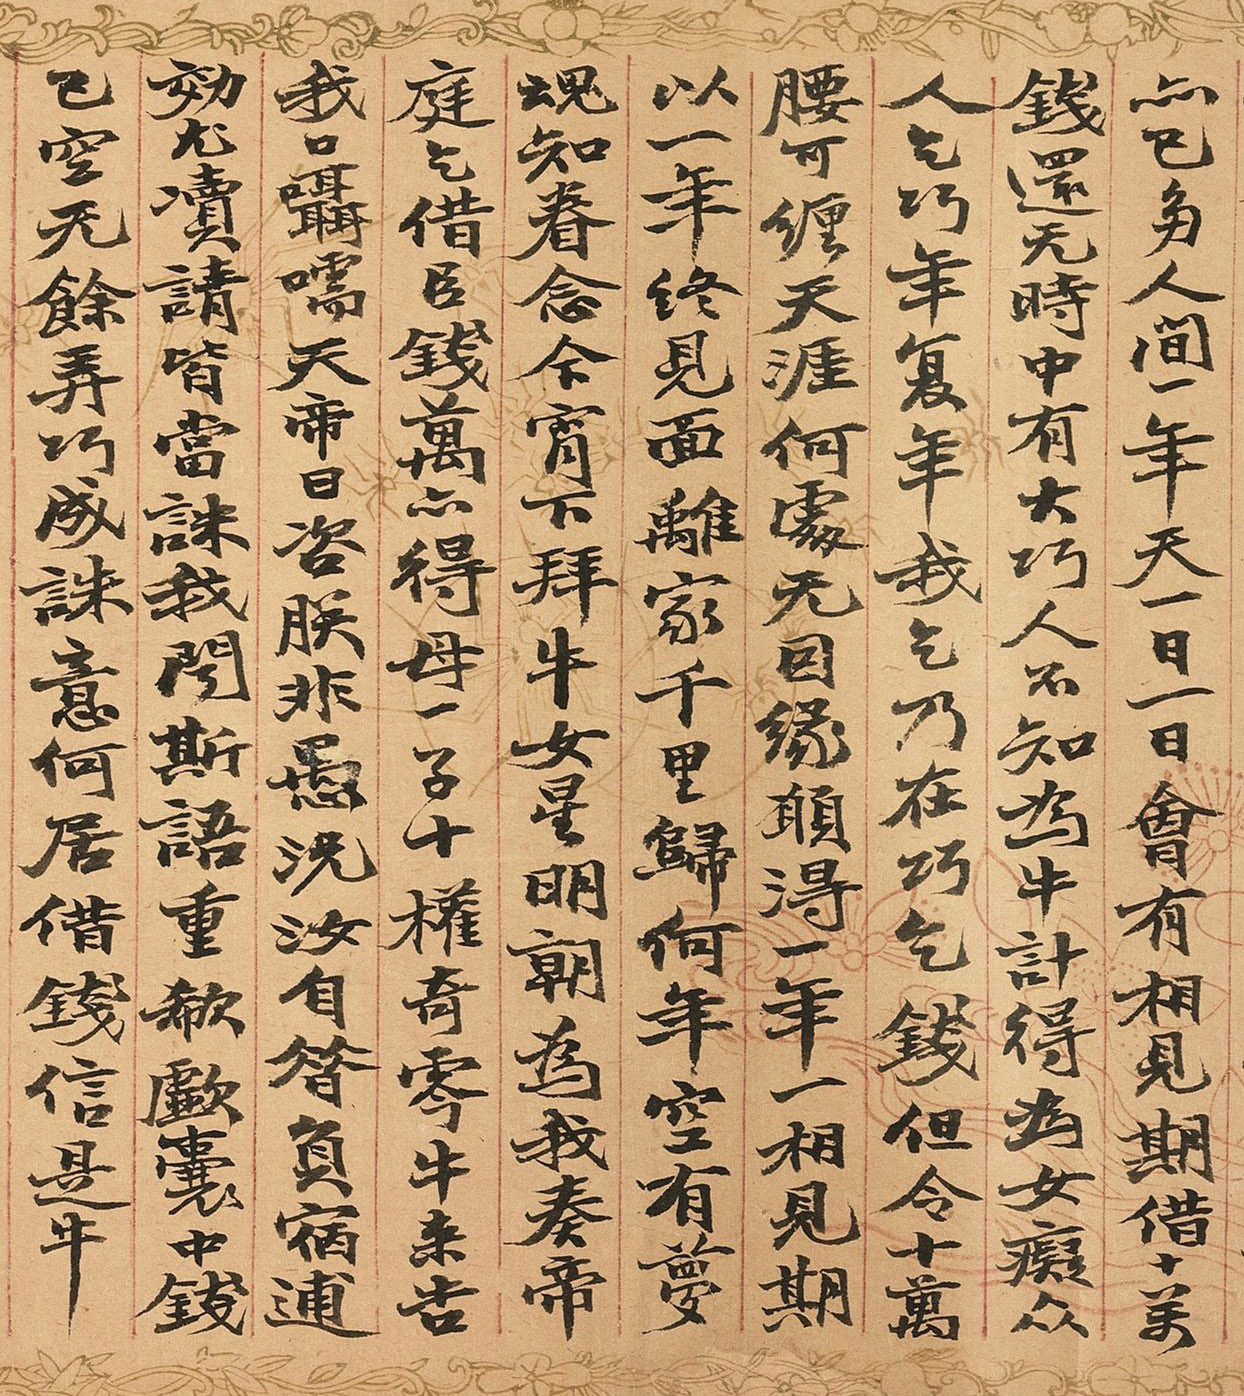 亦已多人間一年天一日一日會有相見期借十万
錢還无時中有大巧人不知為牛計得為女癡众
人乞巧年复年我乞乃在巧乞錢但令十萬
腰可纏天涯何處无因緣頋得一年一相見期
以一年終見面離家千里歸何年空有夢
魂知眷念今宵下拜牛女星明朝為我奏帝
庭乞借臣錢萬亦得母一子十權奇零牛来告
我口囁嚅天帝曰咨朕非愚況汝自替負宿逋
効尤瀆請皆當誅我閲斯語重欷歔囊中錢
已空无餘弄巧成誅意何居借錢信是牛